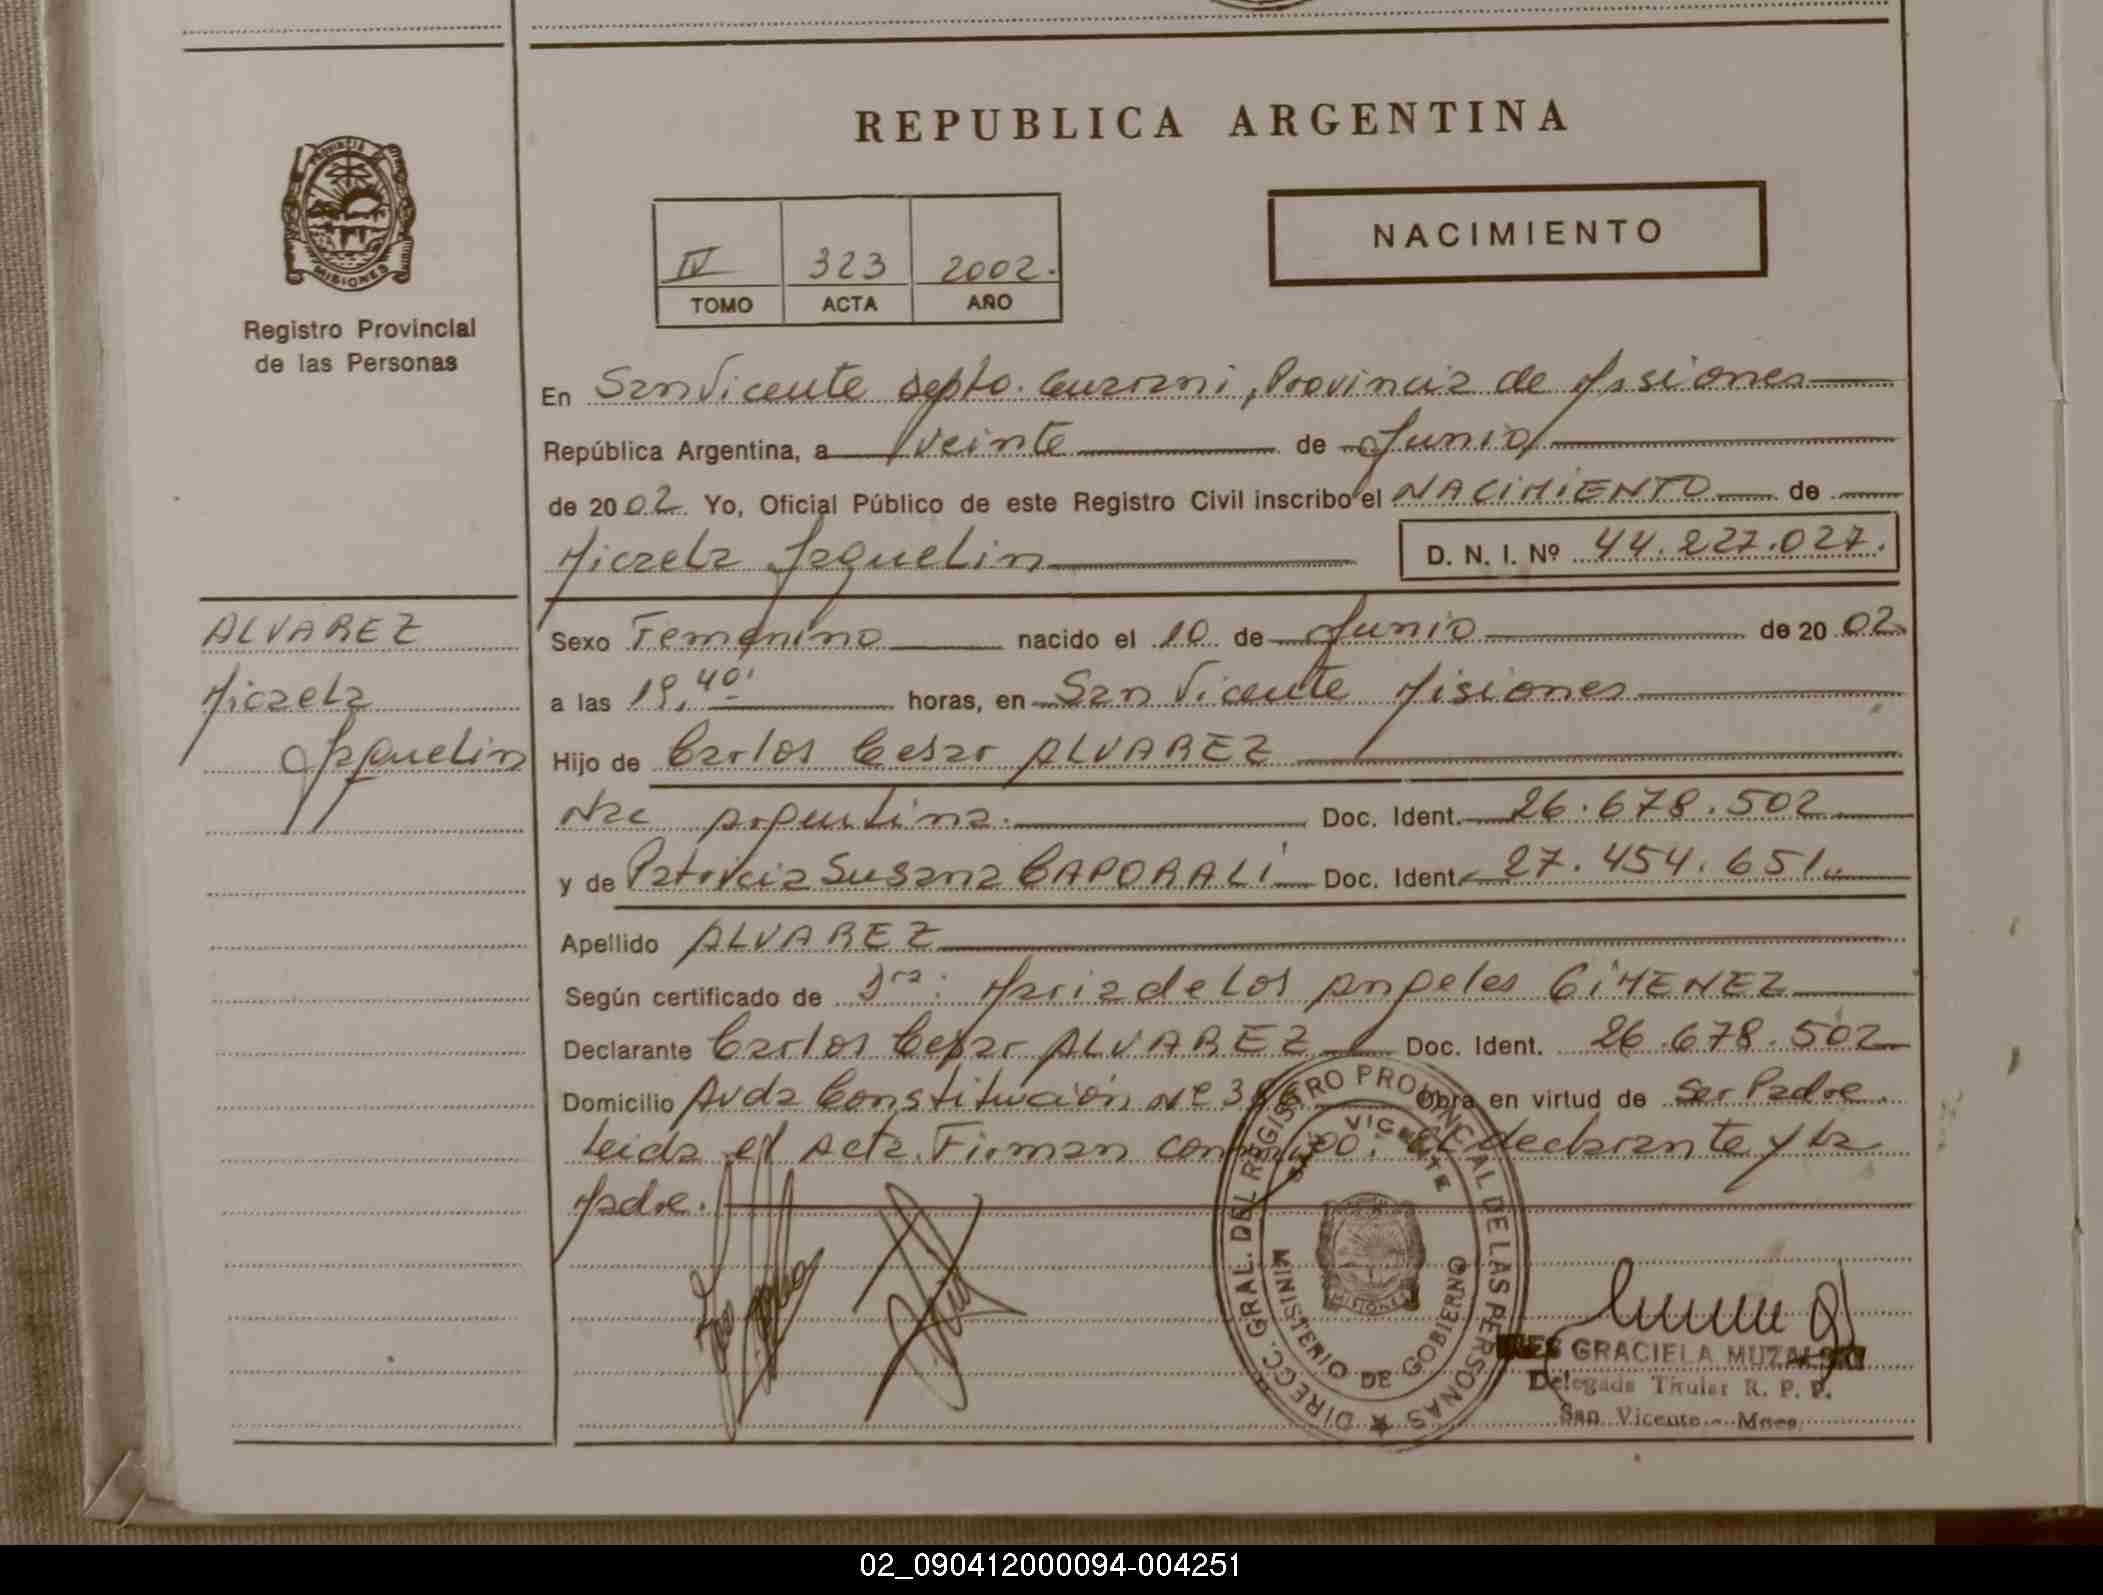 REPUBLICA ARGENTINA
PROVINCIA DE
MISIONES
Registro Provincial
de las Personas
NACIMIENTO
IV 323 2002.
TOMO ACTA AÑO
En San Vicente depto. Guarani, Provincia de Misiones
República Argentina, a veinte de Junio
de 2002 Yo, Oficial Público de este Registro Civil inscribo el NACIMIENTO de
Micaela Jaquelin D. N. I. Nº 44.227.027.
ALVAREZ
Micaela
Jaquelin
Sexo Femenino nacido el 10 de Junio de 2002
a las 19,40' horas, en San Vicente Misiones
Hijo de Carlos Cesar ALVAREZ
Nac Argentina. Doc. Ident. 26.678.502
y de Patricia Susana CAPORALI Doc. Ident. 27.454.651
Apellido ALVAREZ
Según certificado de Dra: Maria de los Angeles GIMENEZ
Declarante Carlos Cesar ALVAREZ Doc. Ident. 26.678.502
Domicilio Avda Constitución Nº Obra en virtud de Ser Padre.
Leida el Acta. Firman conmigo: el declarante y la
Madre.
DIRECC. GRAL. DEL REGISTRO PROVINCIAL DE LAS PERSONAS
SAN VICENTE
MINISTERIO DE GOBIERNO
MISIONES
GRACIELA
Delegada Titular R. P. P.
San Vicente - Mnes
02_090412000094-004251